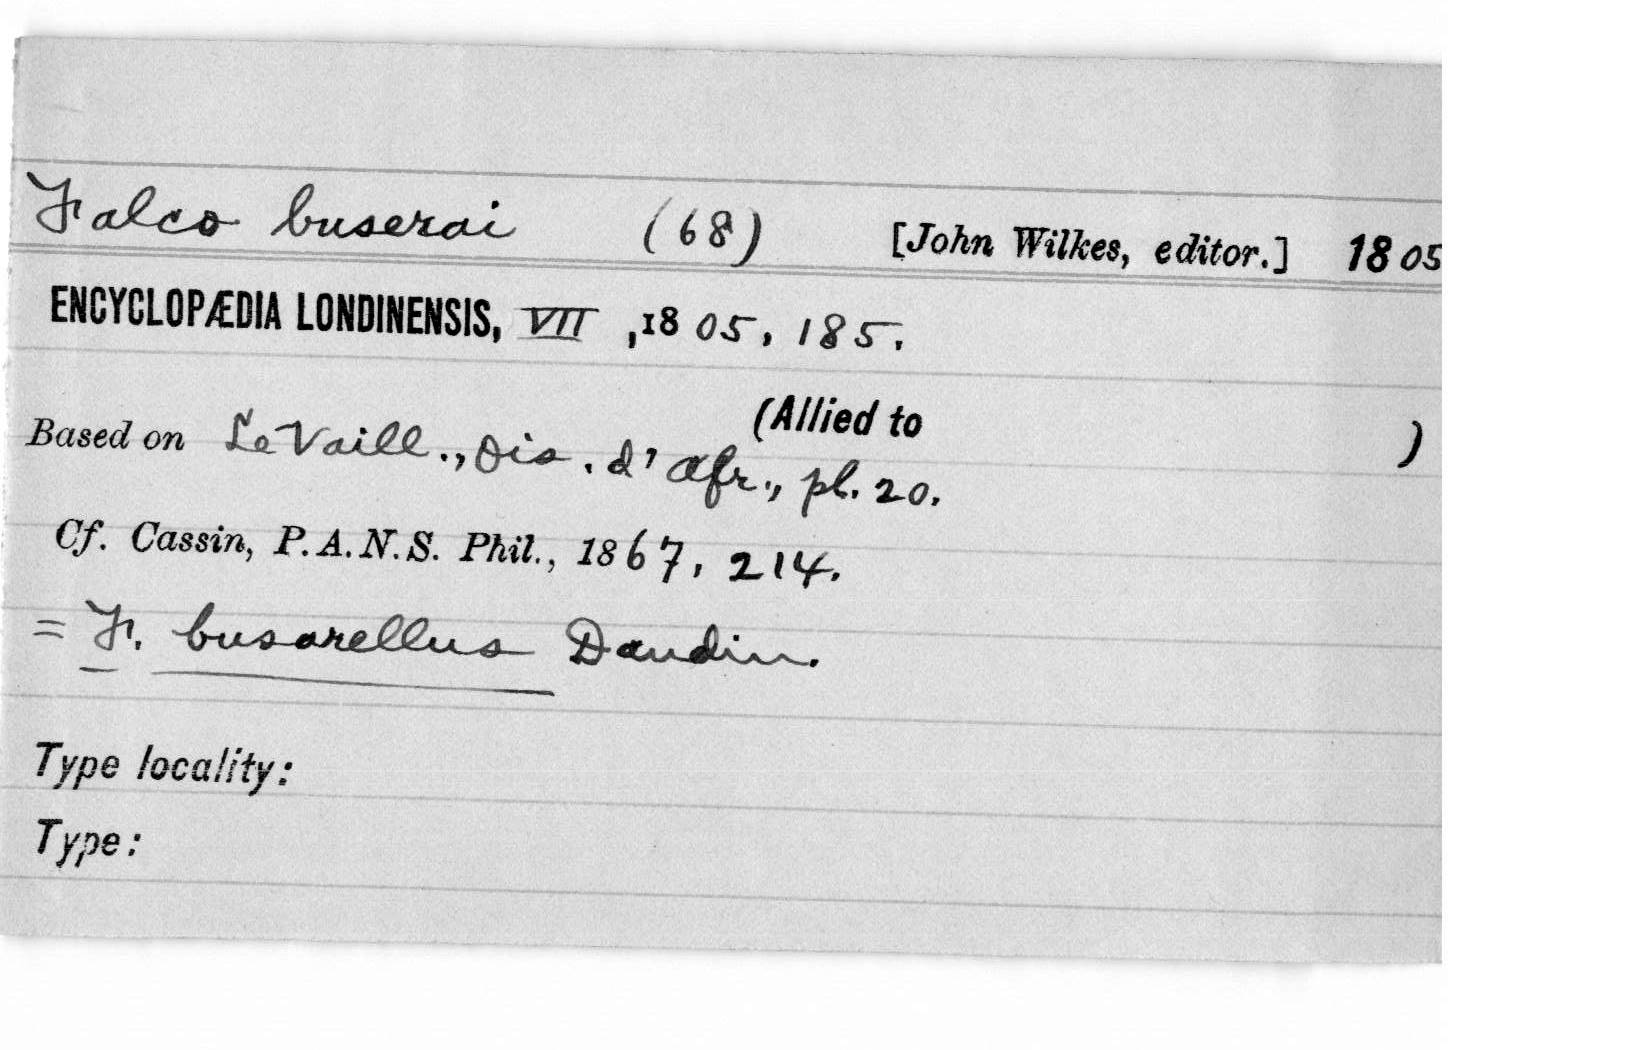 Falco buserai (68) [John Wilkes, editor.] 1805
ENCYCLOPÆDIA LONDINENSIS, VII, 1805, 185.
(Allied to )
Based on LeVaill., Ois. d'Afr., pl. 20.
Cf. Cassin, P.A.N.S. Phil., 1867, 214.
= F. busarellus Daudin.
Type locality:
Type: